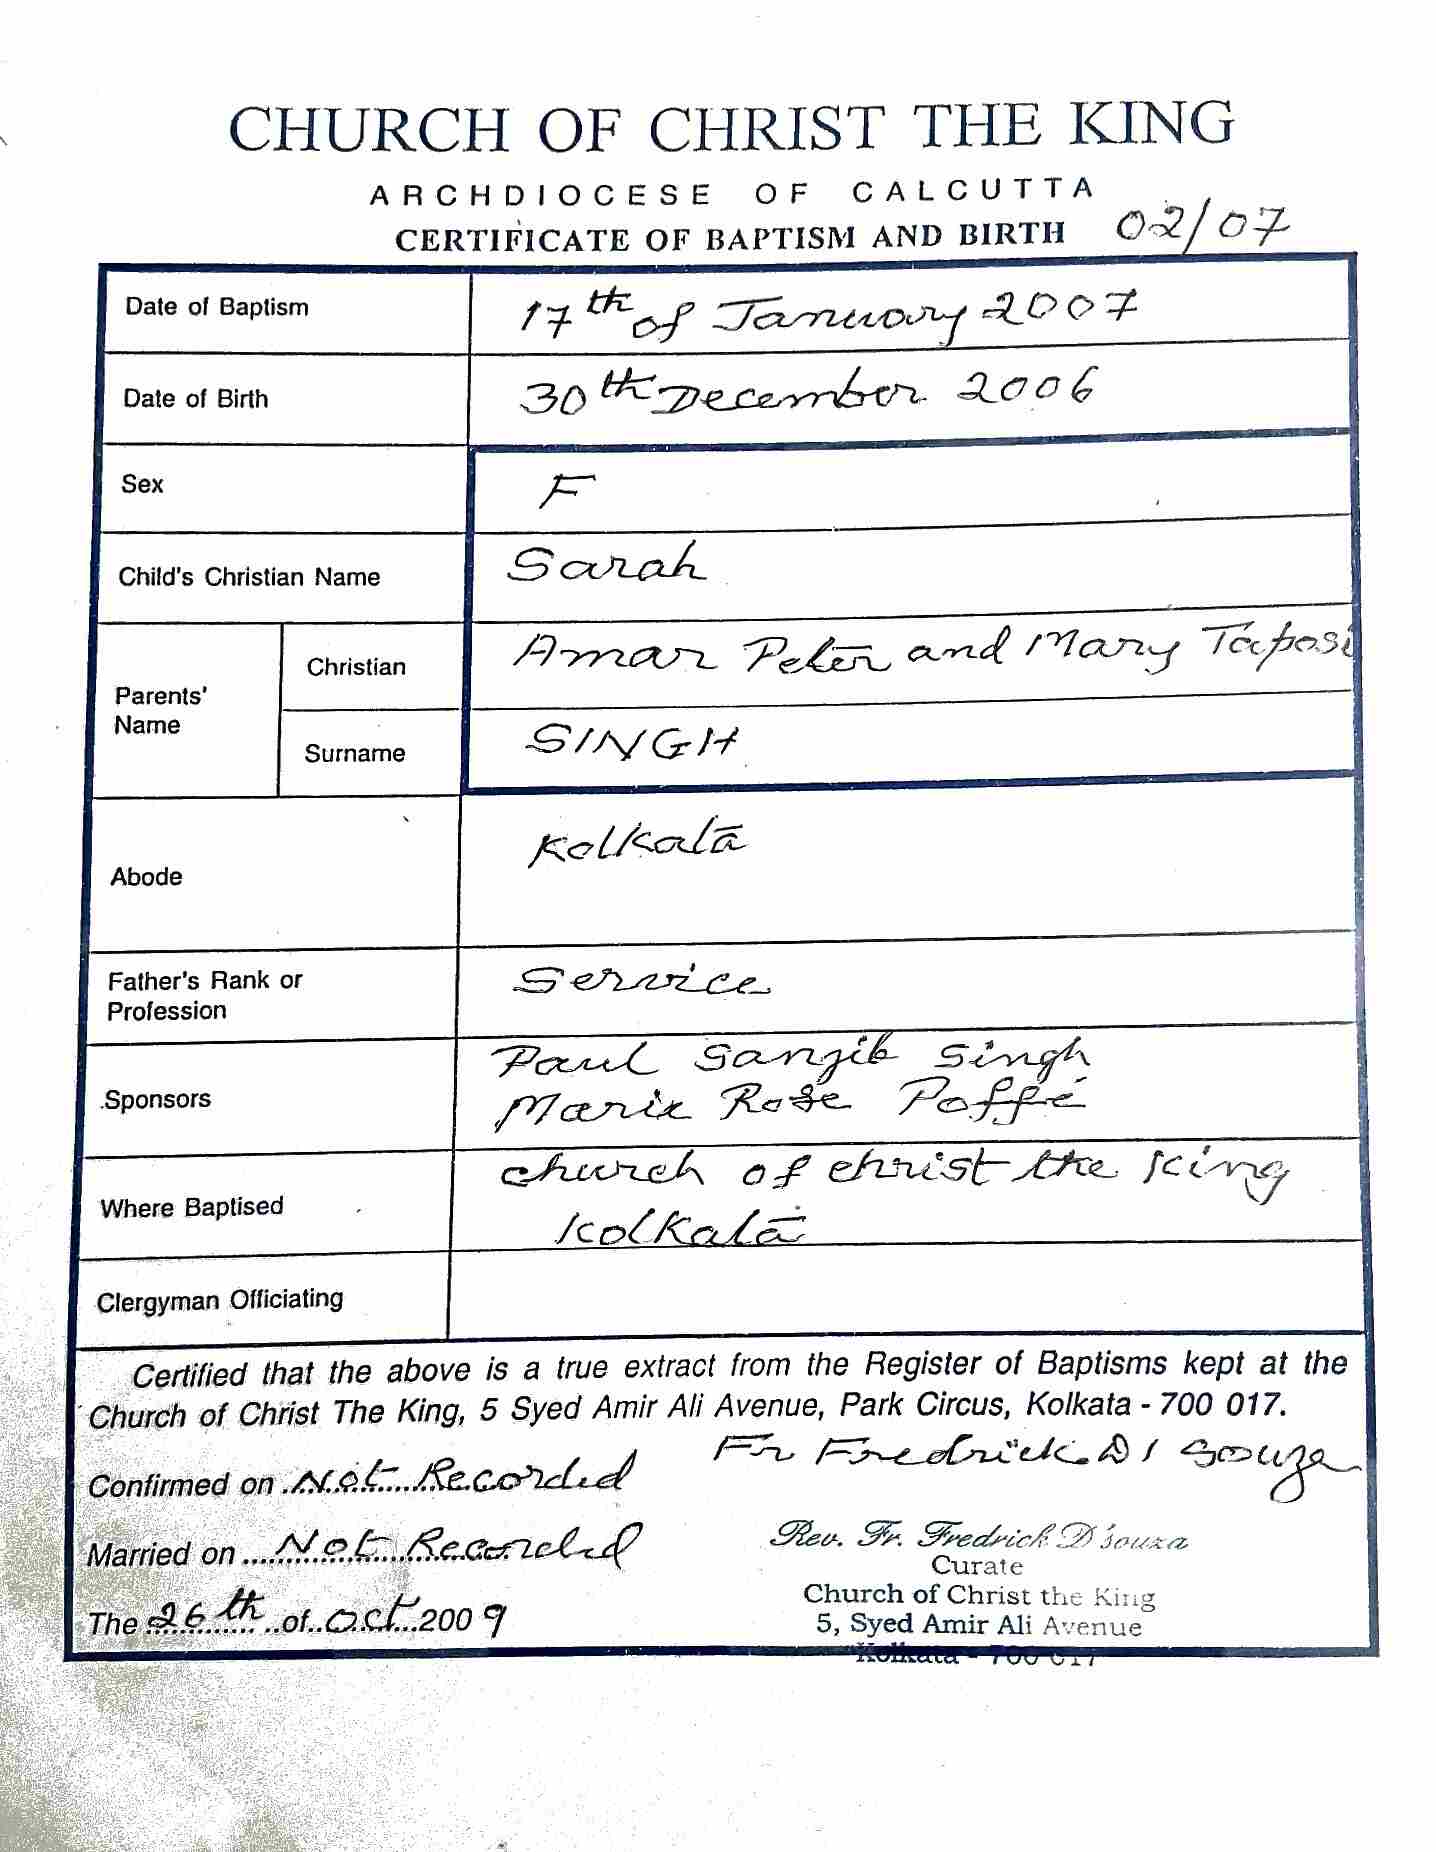 CHURCH OF CHRIST THE KING
ARCHDIOCESE OF CALCUTTA
CERTIFICATE OF BAPTISM AND BIRTH 02/07
Date of Baptism 17th of January 2007
Date of Birth 30th December 2006
Sex F
Child's Christian Name Sarah
Parents' Name Christian Amar Peter and Mary Taposi
Surname SINGH
Abode Kolkata
Father's Rank or Profession Service
Sponsors Paul Sanjib Singh
Maria Rose Poffé
Where Baptised church of christ the King
Kolkata
Clergyman Officiating
Certified that the above is a true extract from the Register of Baptisms kept at the
Church of Christ The King, 5 Syed Amir Ali Avenue, Park Circus, Kolkata - 700 017.
Fr Fredrick D'Souza
Confirmed on Not Recorded
Married on Not Recorded
Rev. Fr. Fredrick D'souza
Curate
Church of Christ the King
The 26th of Oct 2009
5, Syed Amir Ali Avenue
Kolkata - 700 017